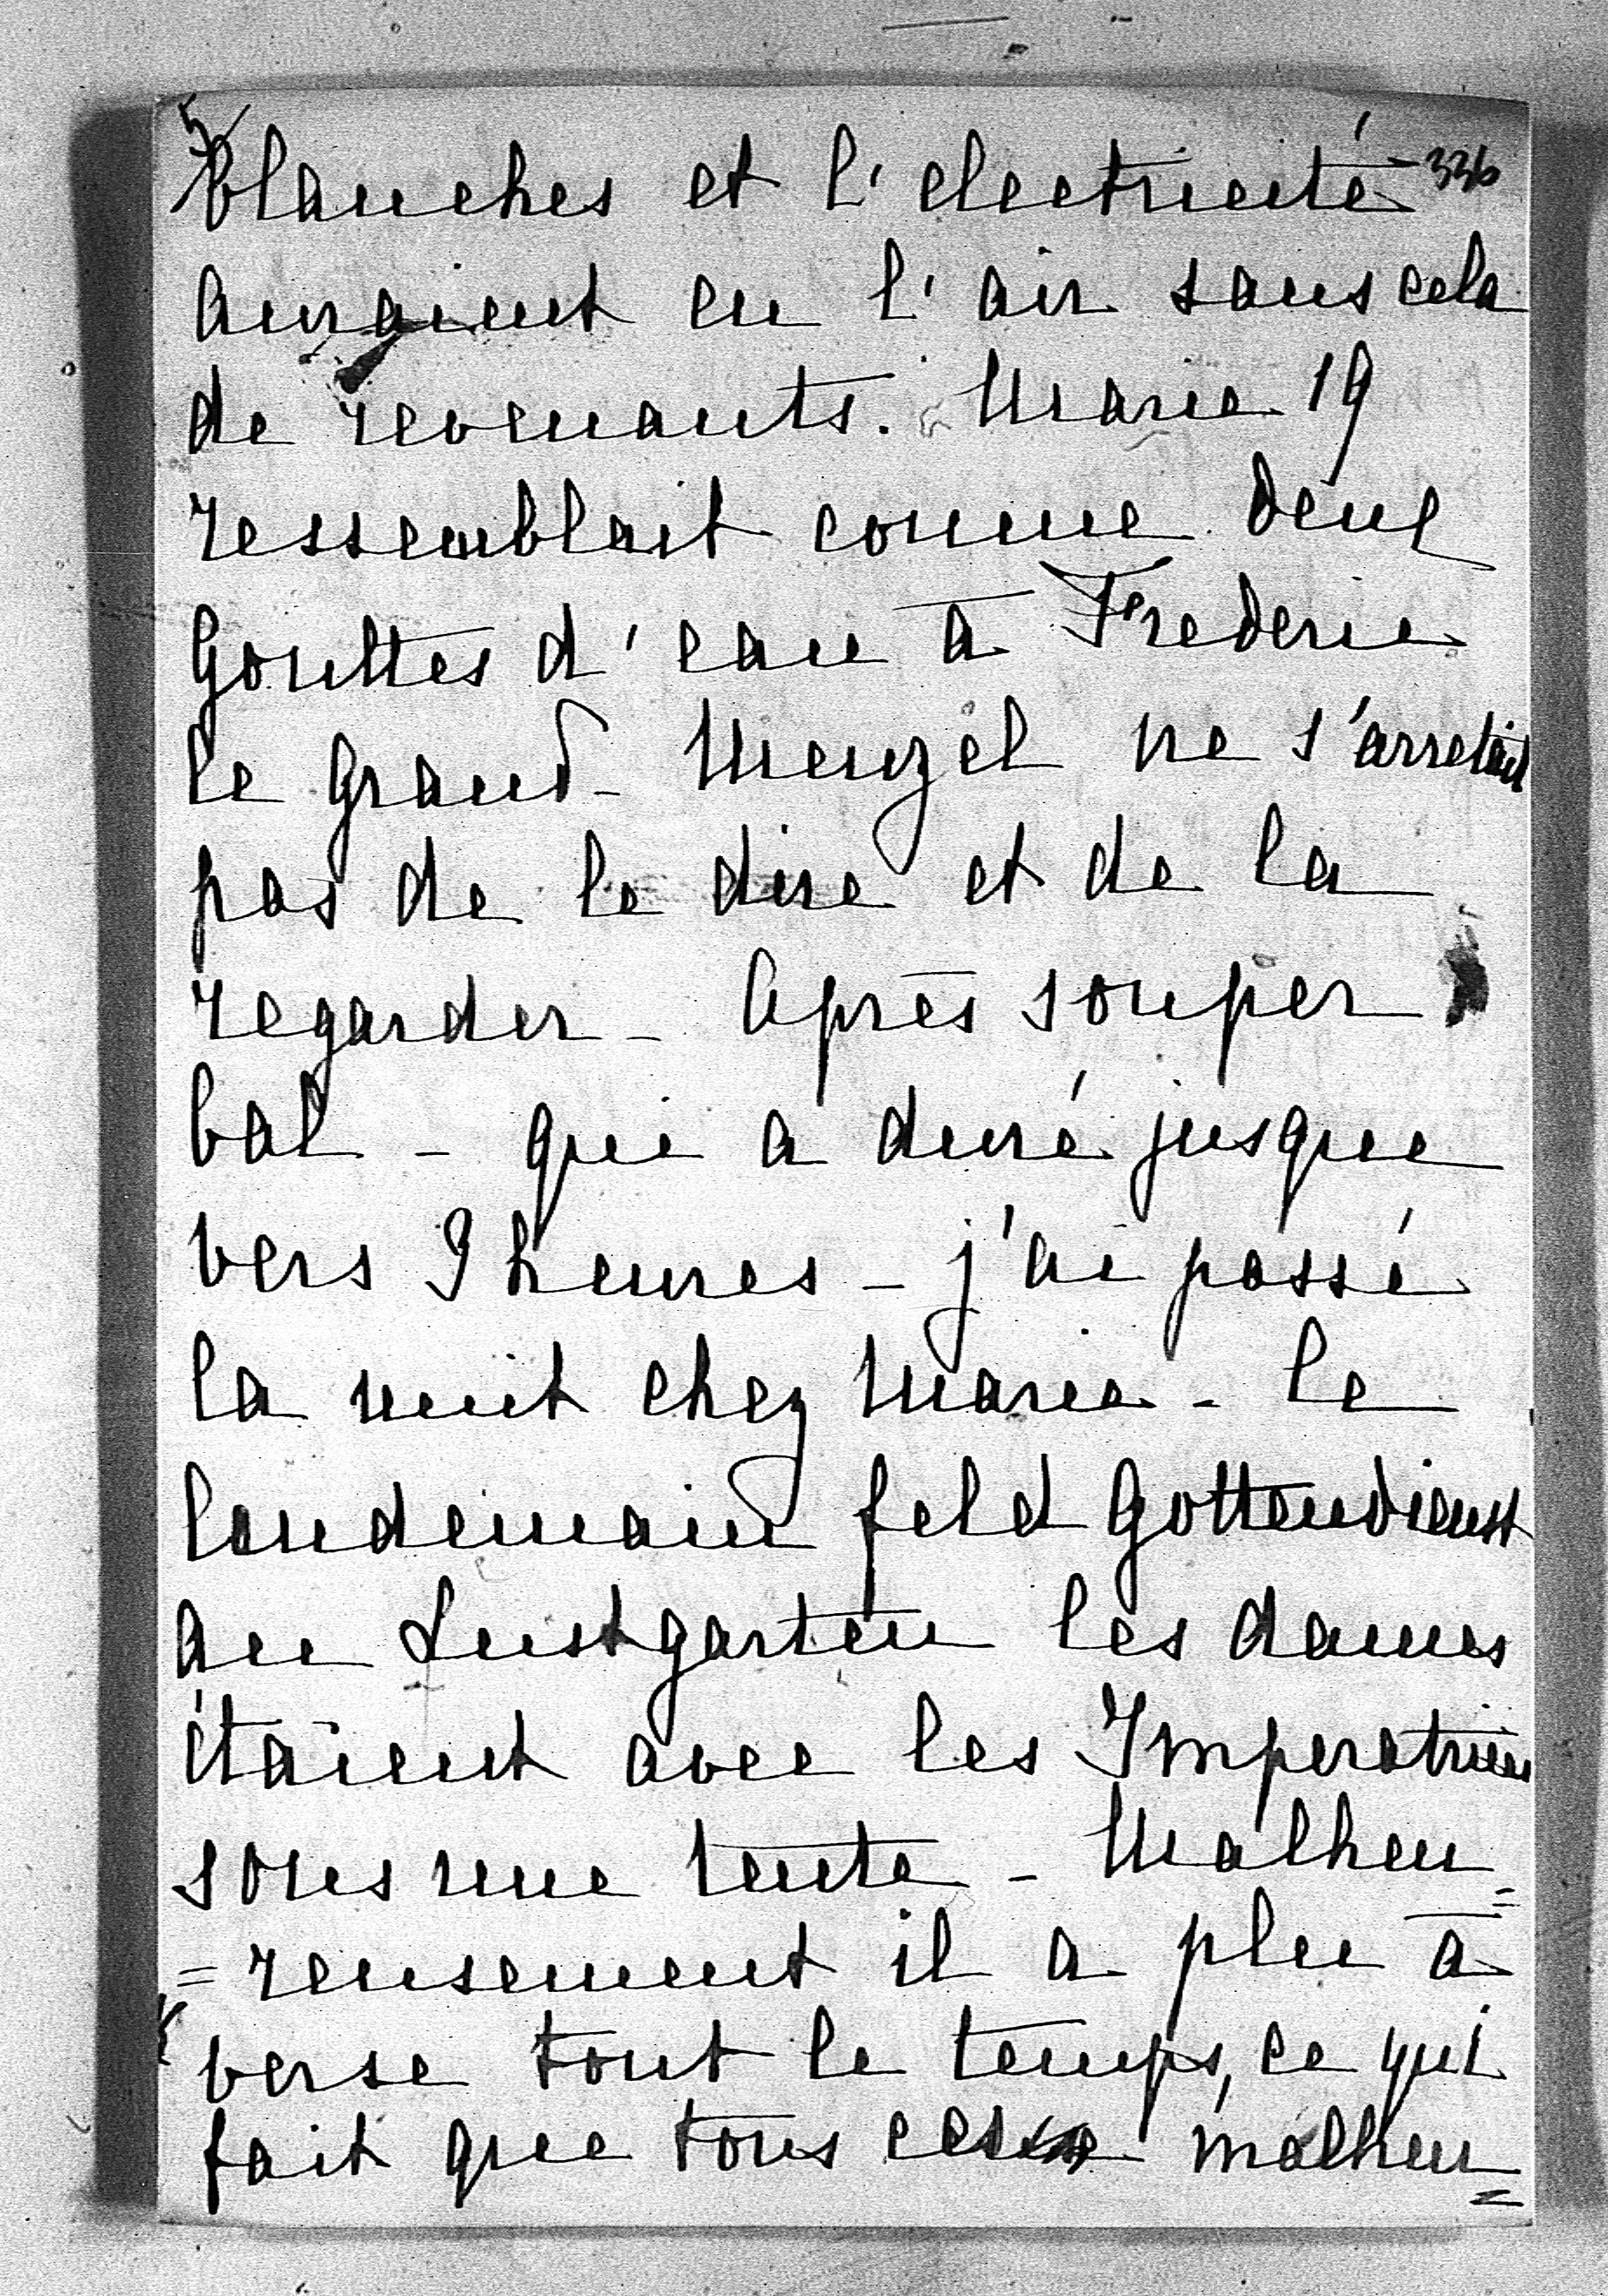 5/
blanches et l'electricité 336
auraient eu l'air sans cela
de revenants. Marie 19
ressemblait comme deux
gouttes d'eau à Frederic
le grand - Menzel ne s'arretait
pas de le dire et de la
regarder - Après souper
bal - qui a duré jusque
vers 9 heures - j'ai passé
la nuit chez Marie - Le
landemain feld Gottendienst
au Lustgarten les dames
étaient avec les Imperatrices
sous une tente - Malheu=
=reusement il a plu à
verse tout le temps, ce qui
fait que tous ces malheu=